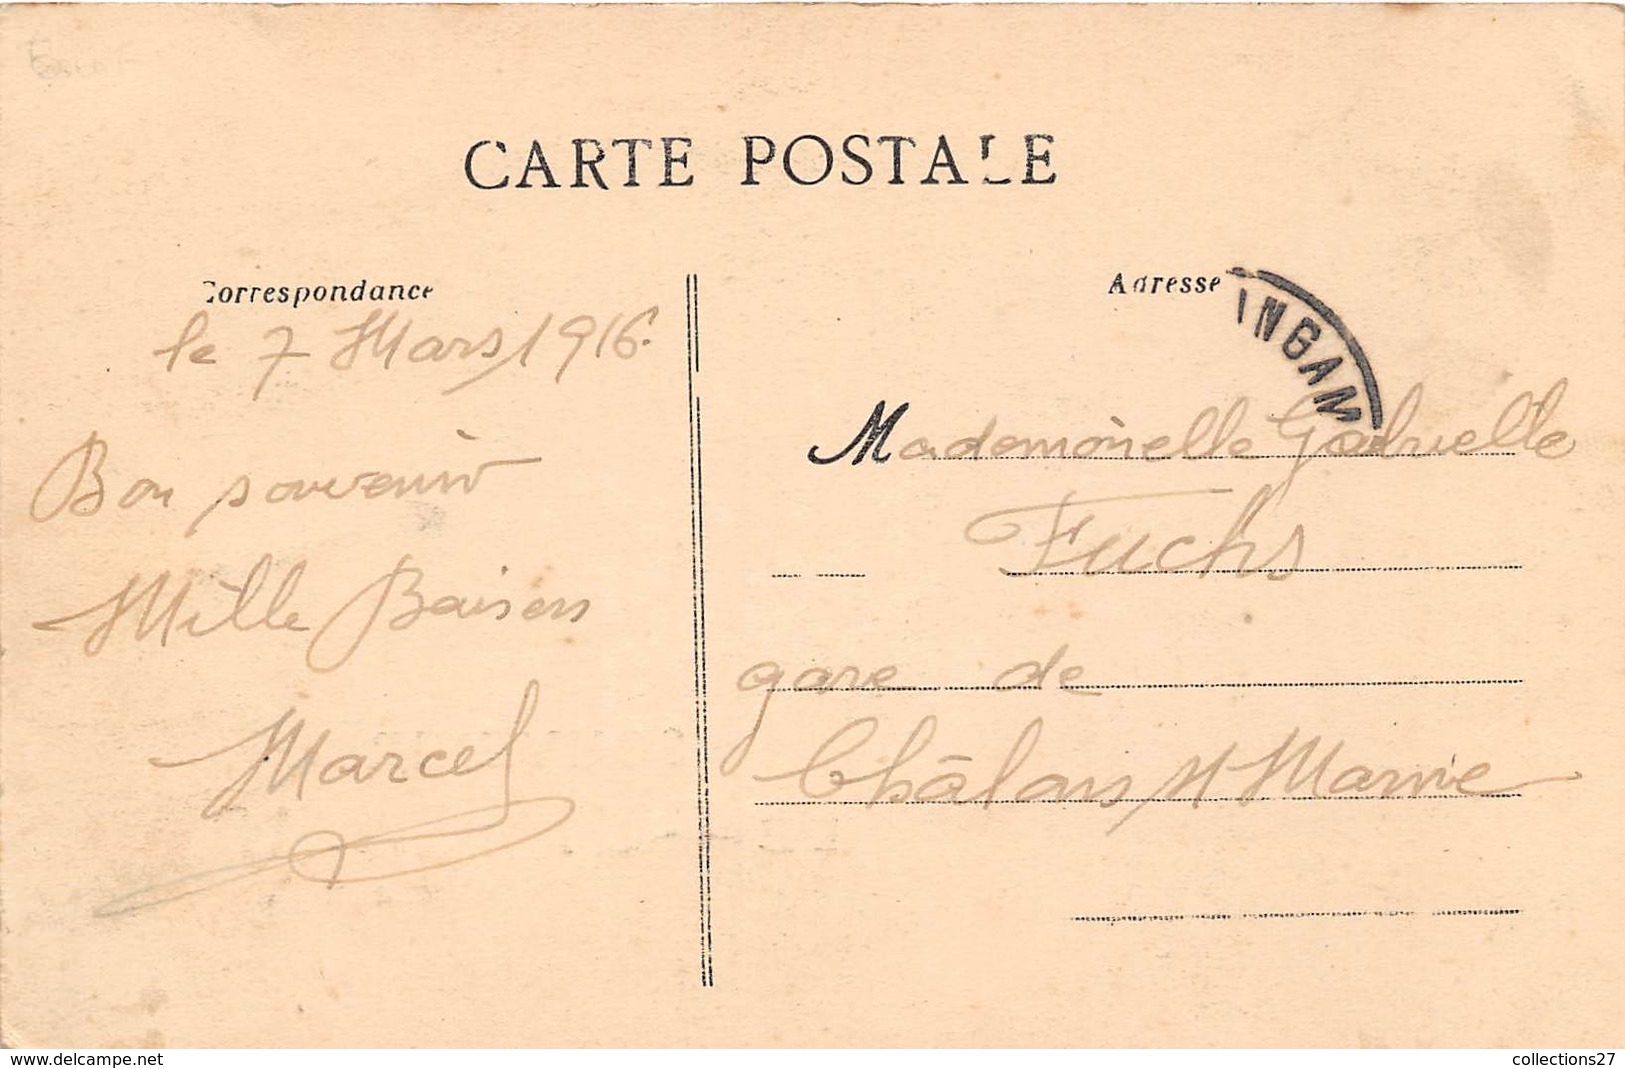 CARTE POSTALE
Correspondance
le 7 Mars 1916.
Bon souvenir
Mille Baisers
Marcel
Adresse
INGAM
Mademoiselle Gabrielle
Fuchs
gare de
Châlons s/ Marne
www.delcampe.net
collections27